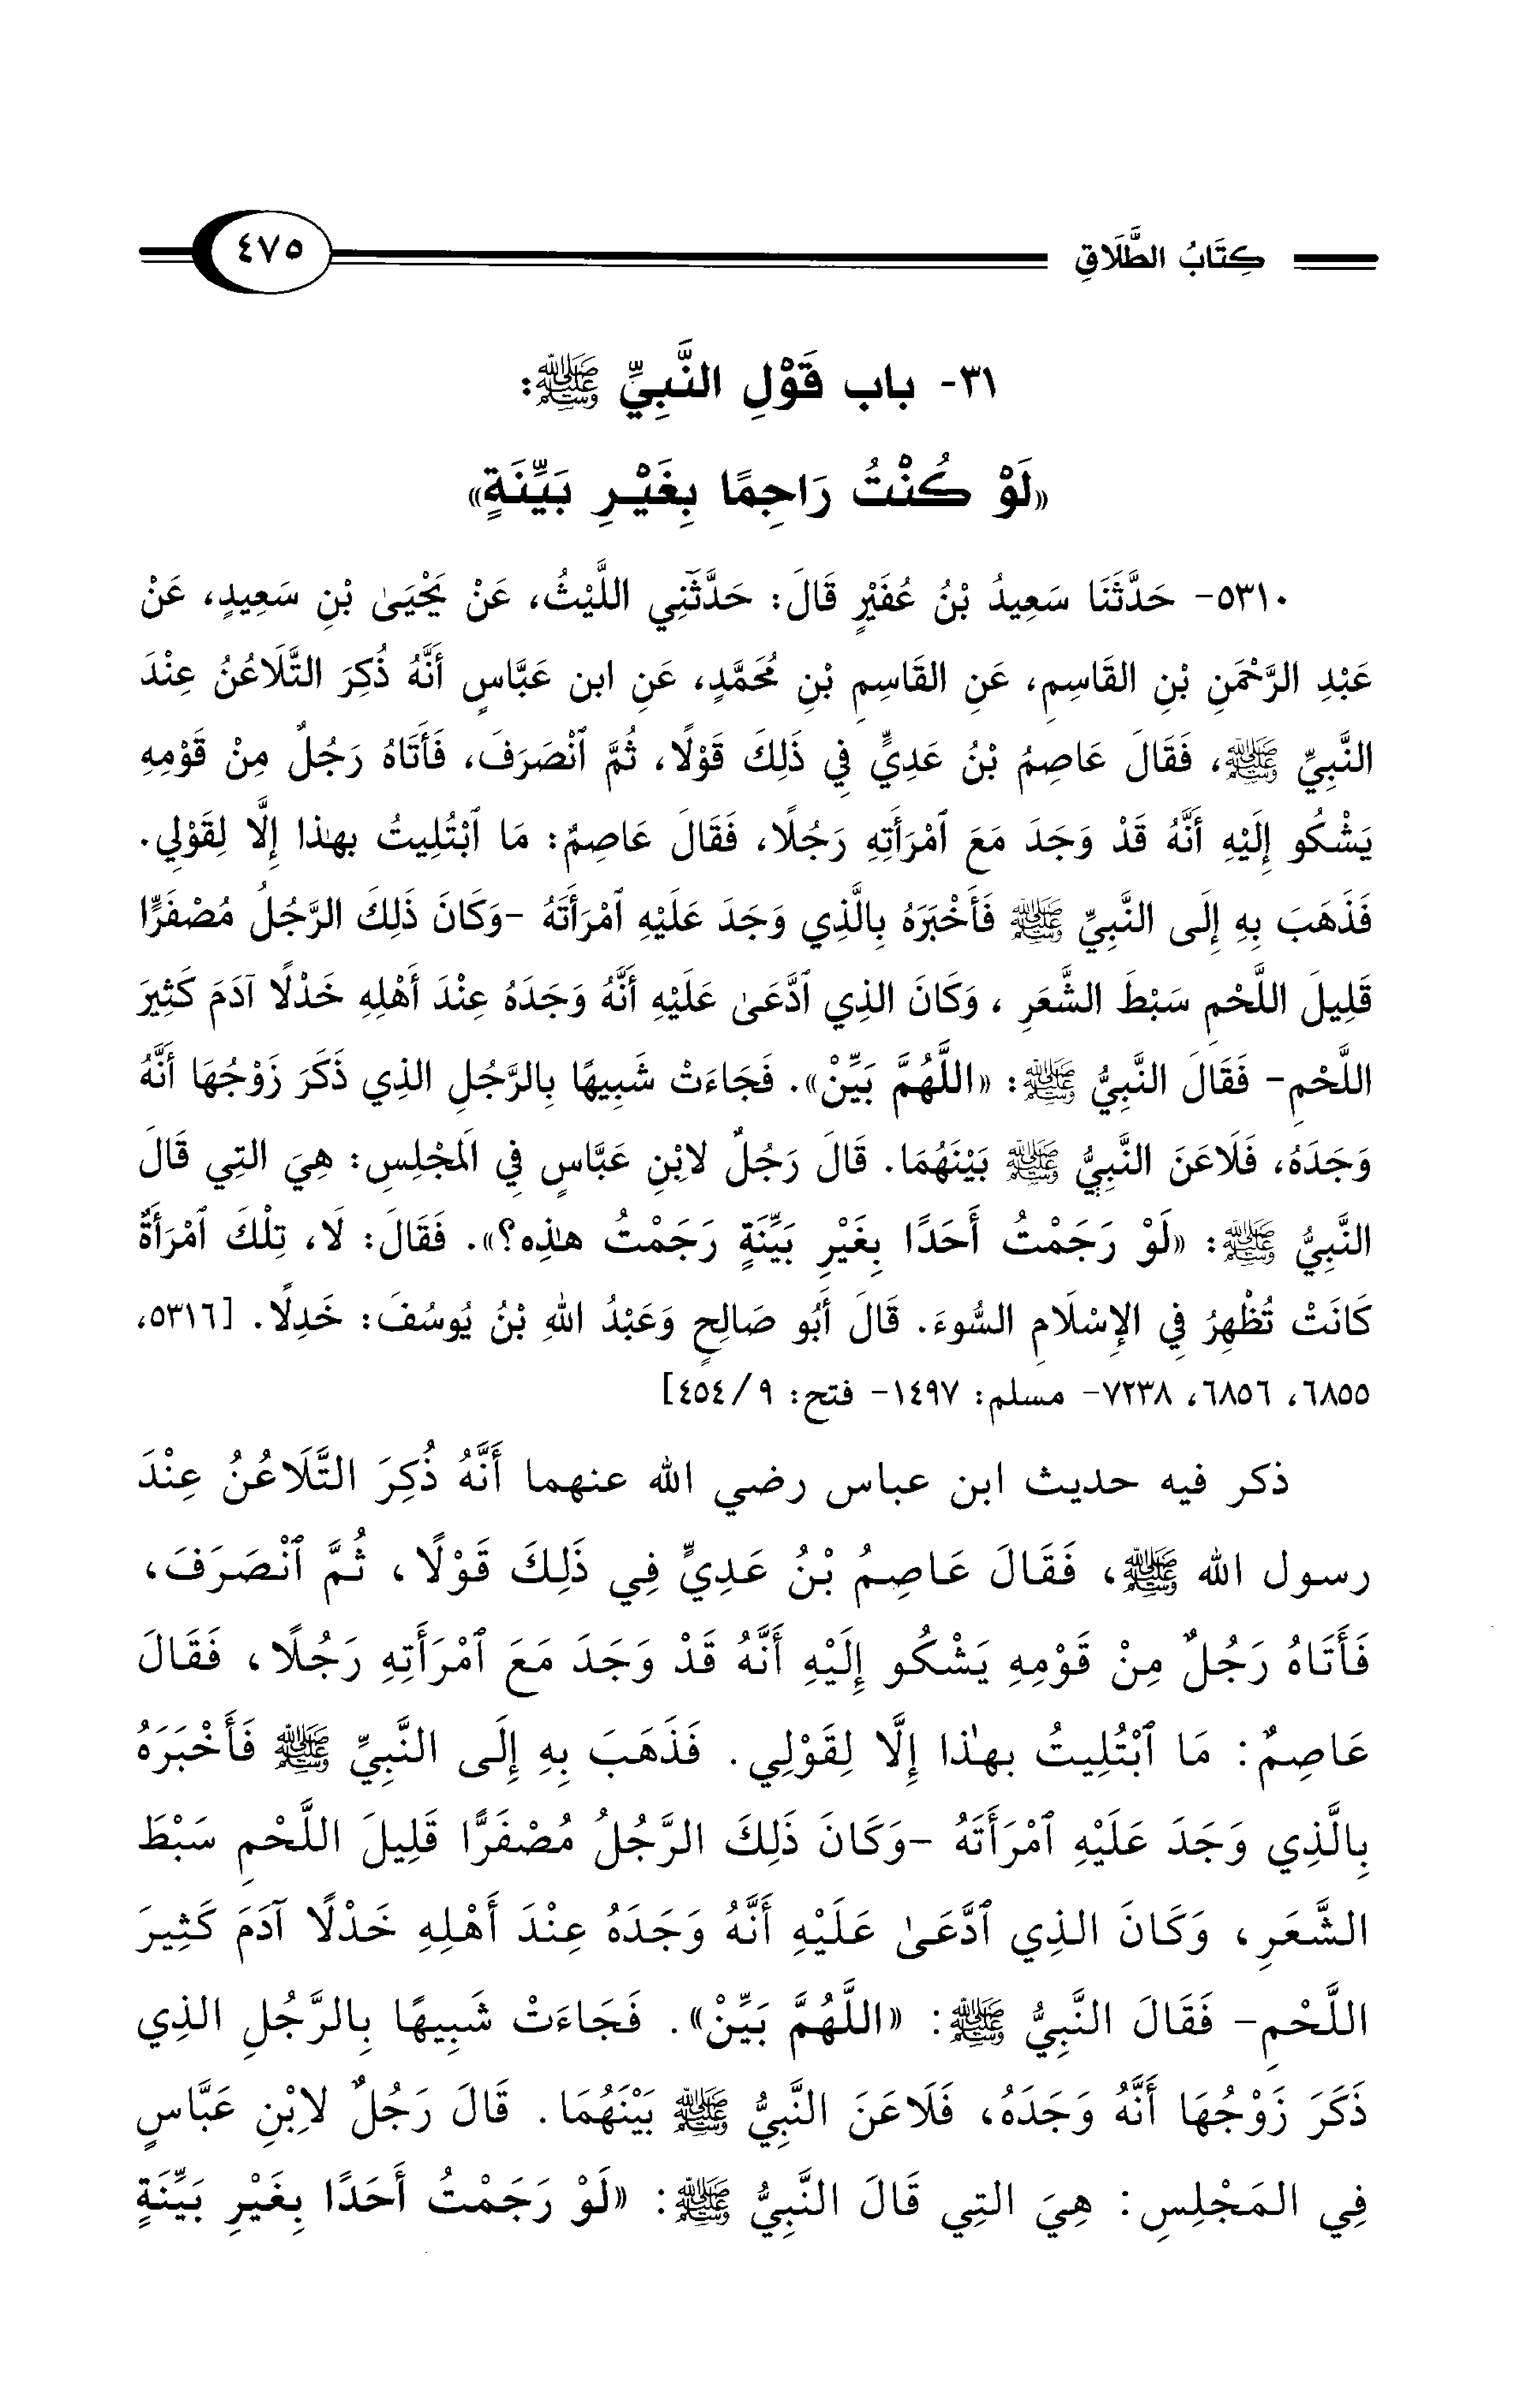 كِتَابُ الطَّلَاقِ ٤٧٥
٣١- باب قَوْلِ النَّبِيِّ ﷺ:
«لَوْ كُنْتُ رَاجِمًا بِغَيْرِ بَيِّنَةٍ»
٥٣١٠- حَدَّثَنَا سَعِيدُ بْنُ عُفَيْرٍ قَالَ: حَدَّثَنِي اللَّيْثُ، عَنْ يَحْيَىٰ بْنِ سَعِيدٍ، عَنْ
عَبْدِ الرَّحْمَنِ بْنِ القَاسِمِ، عَنِ القَاسِمِ بْنِ مُحَمَّدٍ، عَنِ ابن عَبَّاسٍ أَنَّهُ ذُكِرَ التَّلَاعُنُ عِنْدَ
النَّبِيِّ ﷺ، فَقَالَ عَاصِمُ بْنُ عَدِيٍّ فِي ذَلِكَ قَوْلًا، ثُمَّ ٱنْصَرَفَ، فَأَتَاهُ رَجُلٌ مِنْ قَوْمِهِ
يَشْكُو إِلَيْهِ أَنَّهُ قَدْ وَجَدَ مَعَ ٱمْرَأَتِهِ رَجُلًا، فَقَالَ عَاصِمٌ: مَا ٱبْتُلِيتُ بهٰذا إِلَّا لِقَوْلِي.
فَذَهَبَ بِهِ إِلَى النَّبِيِّ ﷺ فَأَخْبَرَهُ بِالَّذِي وَجَدَ عَلَيْهِ ٱمْرَأَتَهُ -وَكَانَ ذَلِكَ الرَّجُلُ مُصْفَرًّا
قَلِيلَ اللَّحْمِ سَبْطَ الشَّعَرِ، وَكَانَ الذِي ٱدَّعَىٰ عَلَيْهِ أَنَّهُ وَجَدَهُ عِنْدَ أَهْلِهِ خَدْلًا آدَمَ كَثِيرَ
اللَّحْمِ- فَقَالَ النَّبِيُّ ﷺ: «اللَّهُمَّ بَيِّنْ». فَجَاءَتْ شَبِيهًا بِالرَّجُلِ الذِي ذَكَرَ زَوْجُهَا أَنَّهُ
وَجَدَهُ، فَلَاعَنَ النَّبِيُّ ﷺ بَيْنَهُمَا. قَالَ رَجُلٌ لاِبْنِ عَبَّاسٍ فِي الَمجْلِسِ: هِيَ التِي قَالَ
النَّبِيُّ ﷺ: «لَوْ رَجَمْتُ أَحَدًا بِغَيْرِ بَيِّنَةٍ رَجَمْتُ هٰذِه؟». فَقَالَ: لَا، تِلْكَ ٱمْرَأَةٌ
كَانَتْ تُظْهِرُ فِي الإِسْلَامِ السُّوءَ. قَالَ أَبُو صَالِحٍ وَعَبْدُ اللهِ بْنُ يُوسُفَ: خَدِلًا. [٥٣١٦،
٦٨٥٥، ٦٨٥٦، ٧٢٣٨- مسلم: ١٤٩٧- فتح: ٩/ ٤٥٤]
ذكر فيه حديث ابن عباس رضي الله عنهما أَنَّهُ ذُكِرَ التَّلَاعُنُ عِنْدَ
رسول الله ﷺ، فَقَالَ عَاصِمُ بْنُ عَدِيٍّ فِي ذَلِكَ قَوْلًا، ثُمَّ ٱنْصَرَفَ،
فَأَتَاهُ رَجُلٌ مِنْ قَوْمِهِ يَشْكُو إِلَيْهِ أَنَّهُ قَدْ وَجَدَ مَعَ ٱمْرَأَتِهِ رَجُلًا، فَقَالَ
عَاصِمٌ: مَا ٱبْتُلِيتُ بهٰذا إِلَّا لِقَوْلِي. فَذَهَبَ بِهِ إِلَى النَّبِيِّ ﷺ فَأَخْبَرَهُ
بِالَّذِي وَجَدَ عَلَيْهِ ٱمْرَأَتَهُ -وَكَانَ ذَلِكَ الرَّجُلُ مُصْفَرًّا قَلِيلَ اللَّحْمِ سَبْطَ
الشَّعَرِ، وَكَانَ الذِي ٱدَّعَىٰ عَلَيْهِ أَنَّهُ وَجَدَهُ عِنْدَ أَهْلِهِ خَدْلًا آدَمَ كَثِيرَ
اللَّحْمِ- فَقَالَ النَّبِيُّ ﷺ: «اللَّهُمَّ بَيِّنْ». فَجَاءَتْ شَبِيهًا بِالرَّجُلِ الذِي
ذَكَرَ زَوْجُهَا أَنَّهُ وَجَدَهُ، فَلَاعَنَ النَّبِيُّ ﷺ بَيْنَهُمَا. قَالَ رَجُلٌ لاِبْنِ عَبَّاسٍ
فِي المَجْلِسِ: هِيَ التِي قَالَ النَّبِيُّ ﷺ: «لَوْ رَجَمْتُ أَحَدًا بِغَيْرِ بَيِّنَةٍ